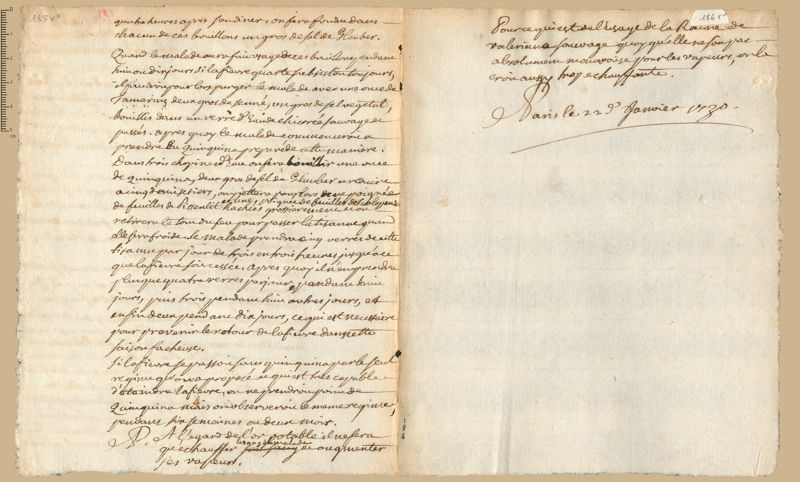 185 v°
quatre heures apres son diner, on fera fondre dans
chacun de ces bouillons un gros de sel de Glauber.
Quand le malade aura fait usage de ces bouillons, pendant
huit ou dix jours, si la fievre quarte subsiste toujours,
il faudra pour lors purger le malade avec une once de
Tamarins deux gros de sené, un gros de sel vegetal,
bouillis dans un verre d'eau de chicorée sauvage et
passés. apres quoy le malade commencera a
prendre du Quinquina preparé de cette maniere.
Dans trois chopines d'eau on fera bouillir une once
de quinquina, deux gros de sel de Glauber a reduire
a cinq demisetiers, on y jettera pour lors une poignée
de feuilles de Pissenlit et une poignée de feuilles de scolopendre
hachées grossierement et on
retirera le tout du feu pour passer la tisanne quand
elle sera froide. le malade prendra cinq verres de cette
tisanne par jour de trois en trois heures jusqu'a ce
que la fievre soit cessée. apres quoy il n'en prendra
plus que quatre verres par jour pendant huit
jours, puis trois pendant huit autres jours, et
enfin deux pendant dix jours, ce qui est necessaire
pour prevenir le retour de la fievre dans cette
saison facheuse.
Si la fievre se passoit sans quinquina par le seul
regime qu'on a proposé ce qui est tres capable
d'eteindre la fievre, on ne prendroit point de
Quinquina mais on observeroit le meme regime,
pendant six semaines ou deux mois.
A l'egard de l'or potable il ne fera
qu'echauffer le malade et augmenter
ses vapeurs.
186
186 r
Pour ce qui est de l'usage de la Racine de
valeriane sauvage quoy qu'elle ne soit pas
absolument mauvaise pour les vapeurs, on la
croit aussy trop echauffante.
Paris le 22e Janvier 1730.